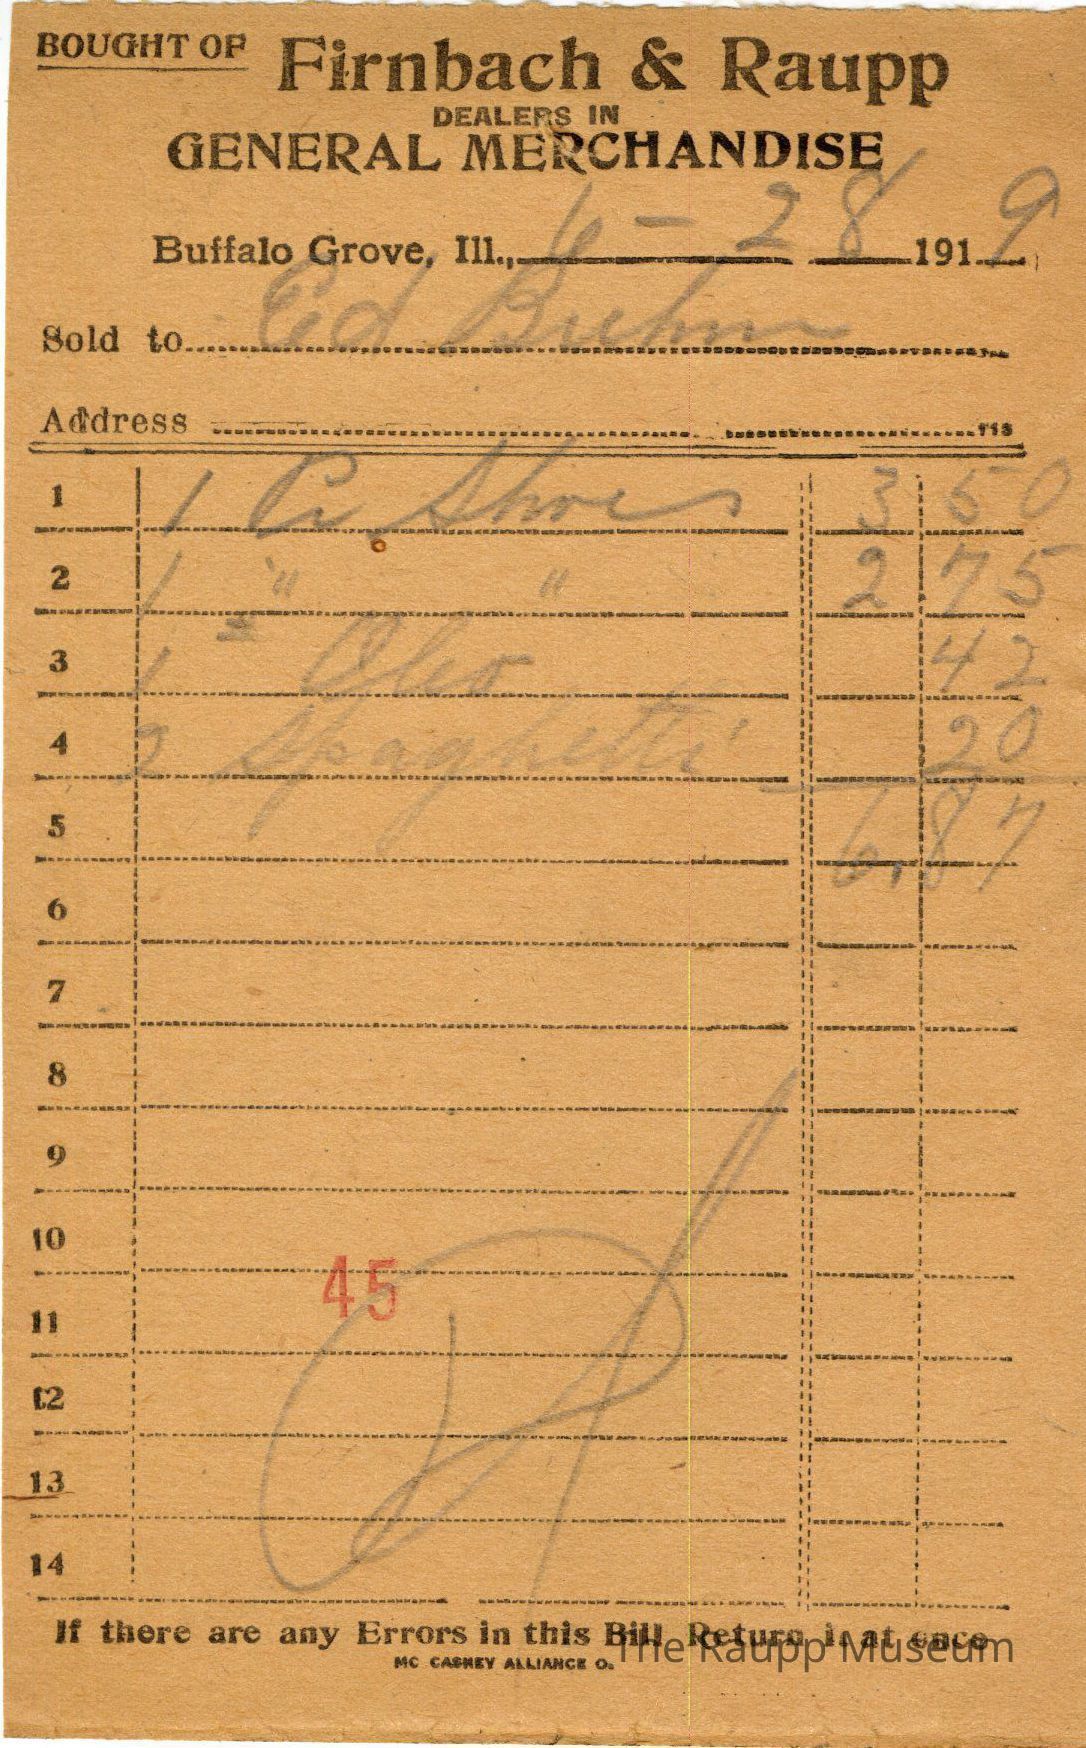 BOUGHT OF Firnbach & Raupp
DEALERS IN
GENERAL MERCHANDISE
Buffalo Grove, Ill., 6 - 28 1919
Sold to Ed Buhm
Address
1 1 Pr Shoes 3 50
2 1 " " 2 75
3 1 Oleo 42
4 2 Spaghetti 20
5 6.87
6
7
8
9
10
45
11
12
13
14
If there are any Errors in this Bill Return it at once
MC CASKEY ALLIANCE O.
The Raupp Museum